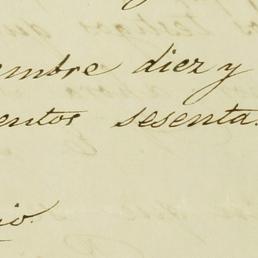 embre diez y
entos sesenta
io.